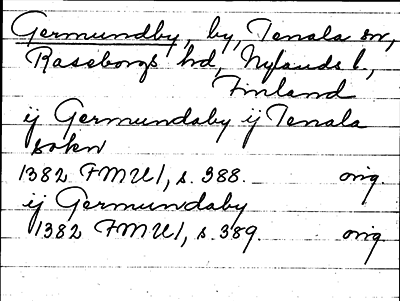 Germundby, by, Tenala sn,
Raseborgs hd, Nylands l.,
Finland
ij Germundaby ij Tenala
sokn
1382 FMU I, s. 388. orig.
ij Germundaby
1382 FMU I, s. 389. orig